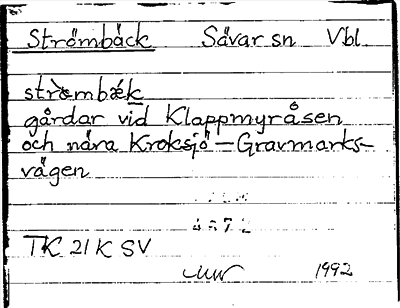 Strömbäck Sävar sn Vbl
strö̀mbǽk
gårdar vid Klappmyråsen
och nära Kroksjö–Gravmarks-
vägen
TK 21 K SV
1992